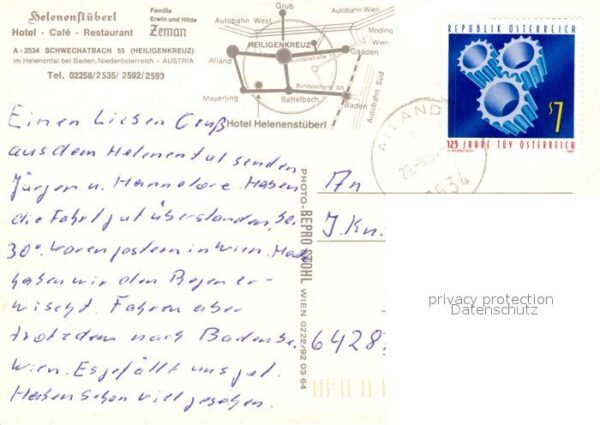 Helenenstüberl
Familie
Erwin und Hilde
Zeman
Hotel · Café · Restaurant
A - 2534 SCHWECHATBACH 55 (HEILIGENKREUZ)
im Helenental bei Baden, Niederösterreich - AUSTRIA
Tel. 02258/2535/ 2592/2593
Grub
Autobahn West
Autobahn Wien
Mödling
Wien
HEILIGENKREUZ
Alland
Gaaden
Mayerling
Bundesstraße
Sattelbach
Baden
Autobahn Süd
Hotel Helenenstüberl
REPUBLIK ÖSTERREICH
S7
125 JAHRE TÜV ÖSTERREICH
ALLAND
2534
Einen Lieben Gruß
aus dem Helenental senden
Jürgen u. Hannelore. Haben
die Fahrt gut überstanden, bei
30°. Waren gestern in Wien.
haben wir den Regen er-
wischt. Fahren aber
trotzdem nach Baden bei
Wien. Es gefällt uns gut.
Haben schon viel gesehen.
PHOTO-REPRO STOHL WIEN 0222/92 03 64
An
J. Kn.
6428
privacy protection
Datenschutz